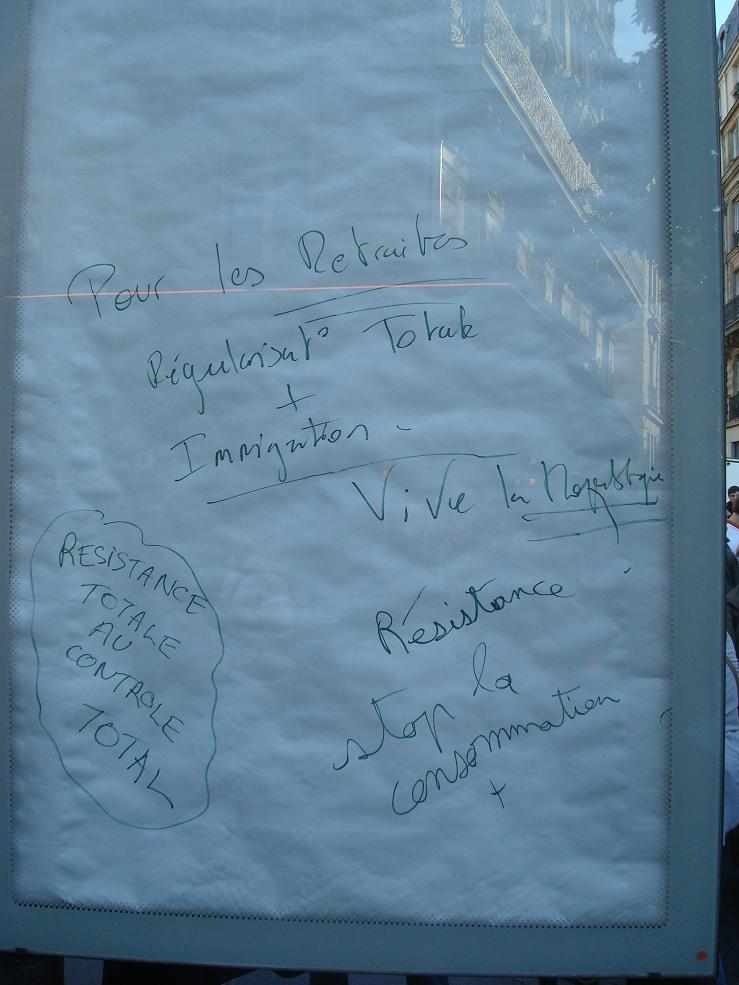 Pour les Retraites
Régularisat° Totale
+
Immigration -
Vive la
RESISTANCE
TOTALE
AU
CONTROLE
TOTAL
Résistance
stop la
consommation
+